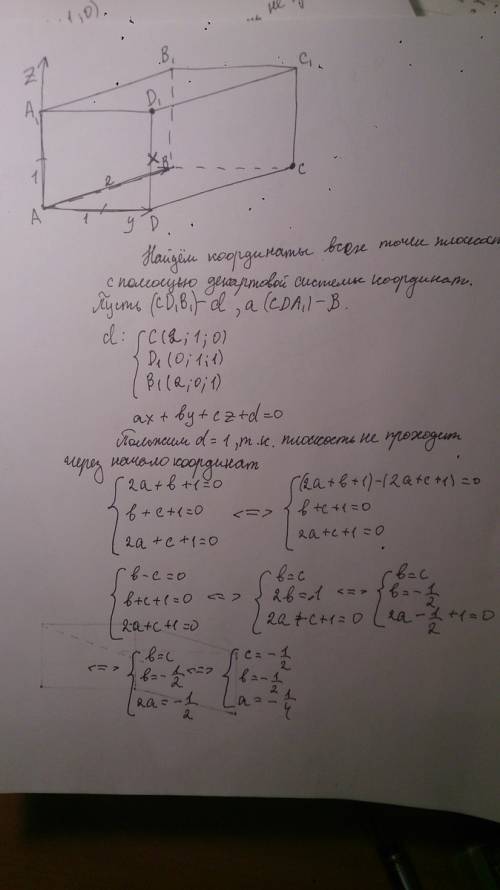 1, 0).
не
Z
B₁
C₁
A₁
D₁
X
B
1
2
C
A
1
y
D
Найдём координаты всех точек плоскост
с помощью декартовой системы координат.
Пусть (CD₁B₁)-α, а (CDA₁)-B.
α: { C(2;1;0)
D₁(0;1;1)
B₁(2;0;1)
ax+by+cz+d=0
Положим d=1, т.к. плоскость не проходит
через начало координат
{ 2a+b+1=0 <=> { (2a+b+1)-(2a+c+1)=0
b+c+1=0 b+c+1=0
2a+c+1=0 2a+c+1=0
{ b-c=0 <=> { b=c <=> { b=c
b+c+1=0 2b=-1 b=-1/2
2a+c+1=0 2a+c+1=0 2a-1/2+1=0
<=> { b=c <=> { c=-1/2
b=-1/2 b=-1/2
2a=-1/2 a=-1/4